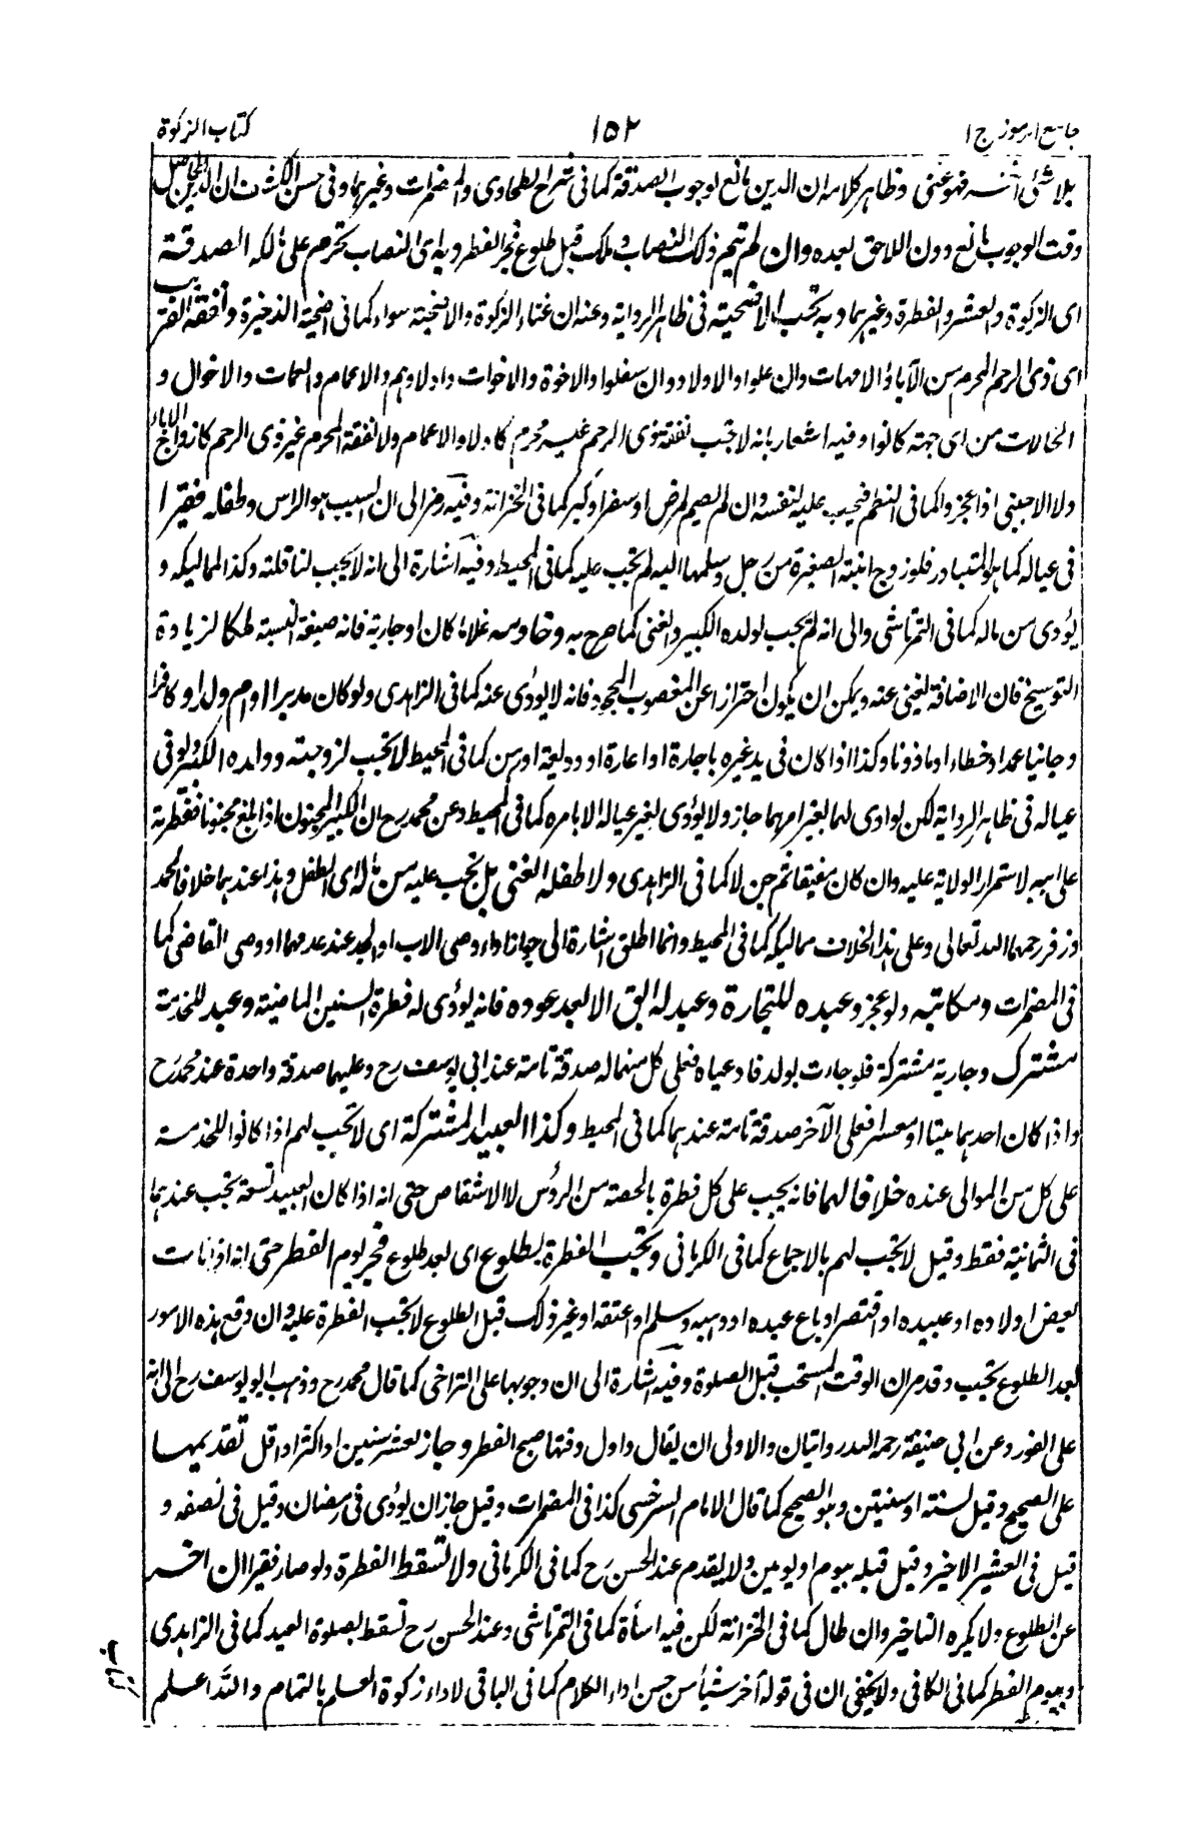 جامع الرموز ج ١
١٥٢
كتاب الزكوة
بلا شئ فهو غنى وظاهر كلامه ان الدين مانع لوجوب الصدقة كما فى شرح الطحاوى والمضمرات وغيرهما وفى ان الدين الحاصل
وقت الوجوب مانع دون اللاحق بعده وان لم تيم ذلك النصاب وملك قبل طلوع فجر الفطر وبه اى النصاب تحرم على مالكه الصدقة
اى الزكوة والعشر والفطرة وغيرهما وبه تجب الاضحية فى ظاهر الرواية وعنه ان غناء الزكوة والاضحية سواء كما فى اضحية الذخيرة ونفقة القريب
اى ذى الرحم المحرم من الآباء والامهات وان علوا والاولاد وان سفلوا والاخوة والاخوات واولادهم والاعمام والعمات والاخوال و
الخالات من اى جهة كانوا وفيه اشعار بانه لا تجب نفقة ذوى الرحم غير محرم كاولاد الاعمام ولا نفقة المحرم غير ذوى الرحم كازواج الاباء
ولا الاجنبى اذا عجزوا كما فى النظم فيجب عليه لنفسه وان لم يصم لمرض او سفر او كبر كما فى الخزانة وفيه رمز الى ان السبب هو الراس وطفله فقيرا
فى عياله كما هو المتبادر فلو زوج ابنته الصغيرة من رجل وسلمها اليه لم تجب عليه كما فى المحيط وفيه اشارة الى انه لا يجب لنافلته وكذا لمماليكه و
يؤدى من ماله كما فى التمرتاشى والى انه لم يجب لولده الكبير والغنى كما صرح به وخادمه غلاما كان او جارية فانه صيغة النسبة ملكا لزيادة
التوسيخ فان الاضافة تغنى عنه ويمكن ان يكون احترازا عن المغصوب المجحود فانه لا يؤدى عنه كما فى الزاهدى ولو كان مدبرا او ام ولد او كافرا
وجانيا عمدا وخطاء او ماذونا وكذا اذا كان فى يد غيره باجارة او اعارة او وديعة او رهن كما فى المحيط لا تجب لزوجته وولده الكبير ولو فى
عياله فى ظاهر الرواية لكن لو ادى لهما بغير امرهما جاز ولا يؤدى لغير عياله الا بامره كما فى المحيط وعن محمد رح ان الكبير المجنون اذا بلغ مجنونا ففطرته
على ابيه لاستمرار الولاية عليه وان كان مفيقا ثم جن لا كما فى الزاهدى ولا طفله الغنى بل تجب عليه من ماله اى الطفل وهذا عندهما خلافا لمحمد
وزفر رحمهما الله تعالى وعلى هذا الخلاف مماليكه كما فى المحيط وانما اطلق اشارة الى جواز اداء وصى الاب او الجد عند عدمهما او وصى القاضى كما
فى المضمرات ومكاتبه ولو عجز وعبده للتجارة وعبد له آبق الا بعد عوده فانه يؤدى له فطرة السنين الماضية وعبد للخدمة
مشترك وجارية مشتركة فلو جاءت بولد فادعياه فعلى كل منهما له صدقة تامة عند ابى يوسف رح وعليهما صدقة واحدة عند محمد رح
واذا كان احدهما ميتا او معسرا فعلى الآخر صدقة تامة عندهما كما فى المحيط وكذا العبيد المشتركة اى لا تجب لهم اذا كانوا للخدمة
على كل من الموالى عنده خلافا لهما فانه يجب على كل فطرة بالحصة من الرؤس لا الاشقاص حتى انه اذا كان العبيد تسعة يجب عندهما
فى الثمانية فقط وقيل لا تجب لهم بالاجماع كما فى الكرمانى وتجب الفطرة بطلوع اى بعد طلوع فجر يوم الفطر حتى انه اذا مات
بعض اولاده او عبيده او افتقر او باع عبده او وهبه وسلم او اعتقه او غير ذلك قبل الطلوع لا تجب الفطرة عليه وان وقع هذه الامور
بعد الطلوع تجب وقد مر ان الوقت المستحب قبل الصلوة وفيه اشارة الى ان وجوبها على التراخى كما قال محمد رح وذهب ابو يوسف رح الى انه
على الفور وعن ابى حنيفة رحمه الله روايتان والاولى ان يقال واول وقتها صبح الفطر وجاز لعشر سنين او اكثر او اقل تقديمها
على الصحيح وقيل لسنة او سنتين وهو الصحيح كما قال الامام السرخسى كذا فى المضمرات وقيل جاز ان يؤدى فى رمضان وقيل فى نصفه و
قيل فى العشر الاخير وقيل قبله بيوم او يومين ولا يقدم عند الحسن رح كما فى الكرمانى ولا تسقط الفطرة ولو صار فقيرا ان اخر
عن الطلوع ولا يكره التاخير وان طال كما فى الخزانة لكن فيه اساءة كما فى التمرتاشى وعند الحسن رح تسقط بصلوة العيد كما فى الزاهدى
وبيوم الفطر كما فى الكافى ولا يخفى ان فى قوله آخر شيأ من حسن اداء الكلام كما فى الباقى لاداء زكوة العلم بالتمام والله اعلم